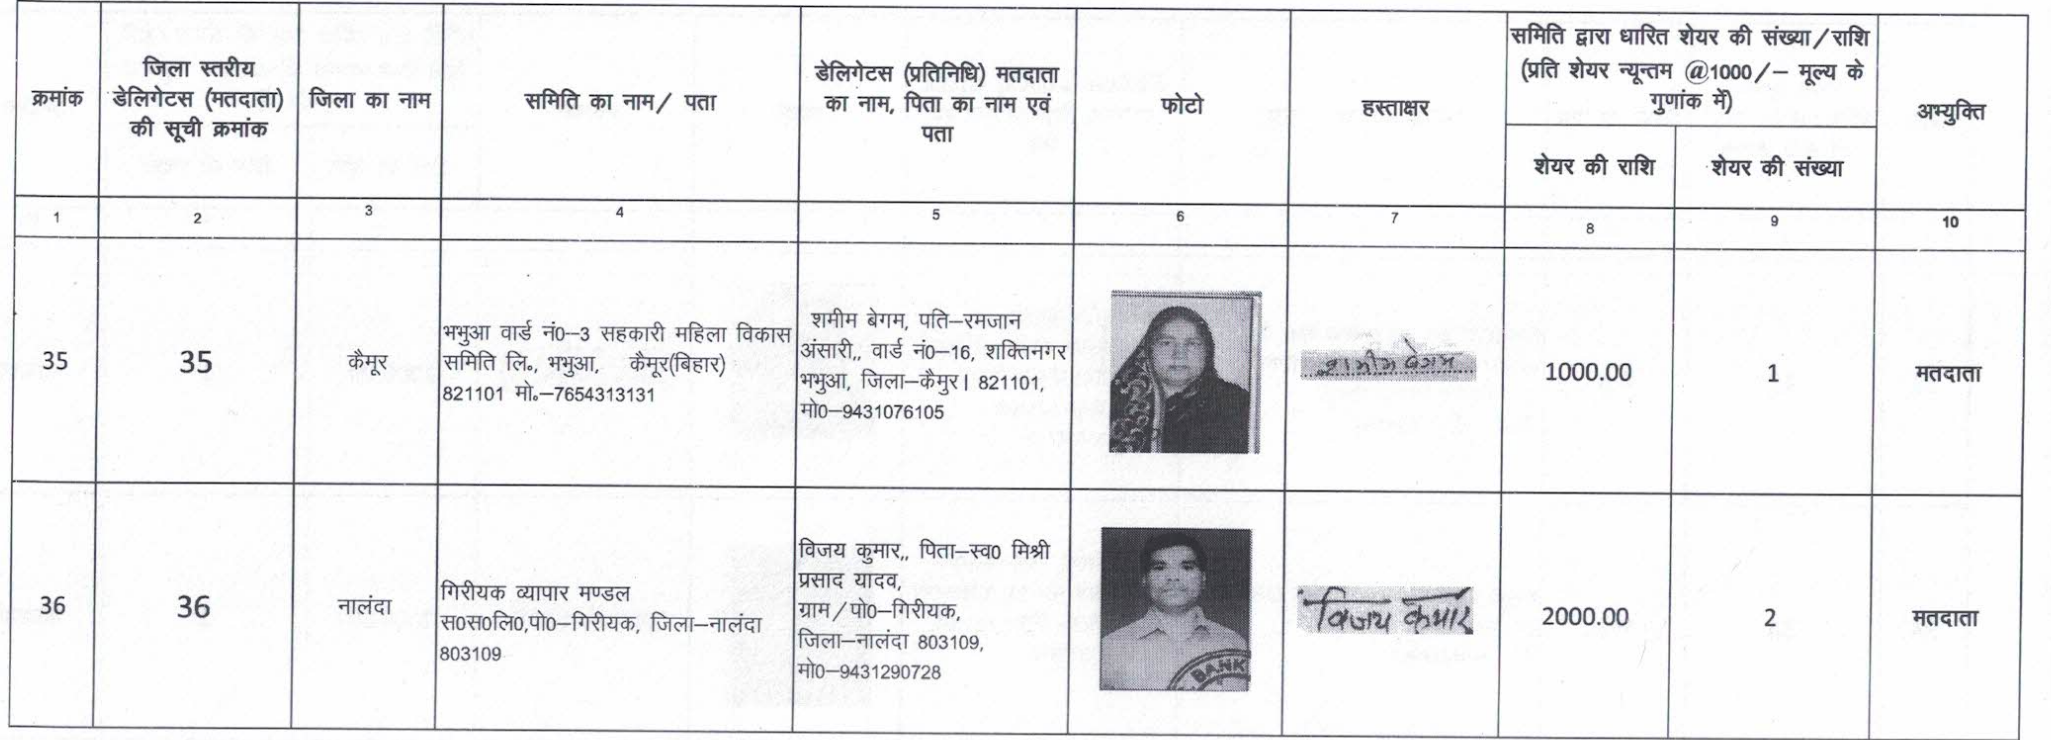 क्रमांक
जिला स्तरीय
डेलिगेटस (मतदाता)
की सूची क्रमांक
जिला का नाम
समिति का नाम/ पता
डेलिगेटस (प्रतिनिधि) मतदाता
का नाम, पिता का नाम एवं
पता
फोटो
हस्ताक्षर
समिति द्वारा धारित शेयर की संख्या/राशि
(प्रति शेयर न्यून्तम @1000/– मूल्य के
गुणांक में)
शेयर की राशि
शेयर की संख्या
अभ्युक्ति
1
2
3
4
5
6
7
8
9
10
35
35
कैमूर
भभुआ वार्ड नं0–3 सहकारी महिला विकास
समिति लि०, भभुआ, कैमूर(बिहार)
821101 मो०–7654313131
शमीम बेगम, पति–रमजान
अंसारी,, वार्ड नं0–16, शक्तिनगर
भभुआ, जिला–कैमुर। 821101,
मो0–9431076105
शमीम बेगम
1000.00
1
मतदाता
36
36
नालंदा
गिरीयक व्यापार मण्डल
स0स0लि0,पो0–गिरीयक, जिला–नालंदा
803109
विजय कुमार,, पिता–स्व0 मिश्री
प्रसाद यादव,
ग्राम/पो0–गिरीयक,
जिला–नालंदा 803109,
मो0–9431290728
BANK
विजय कुमार
2000.00
2
मतदाता